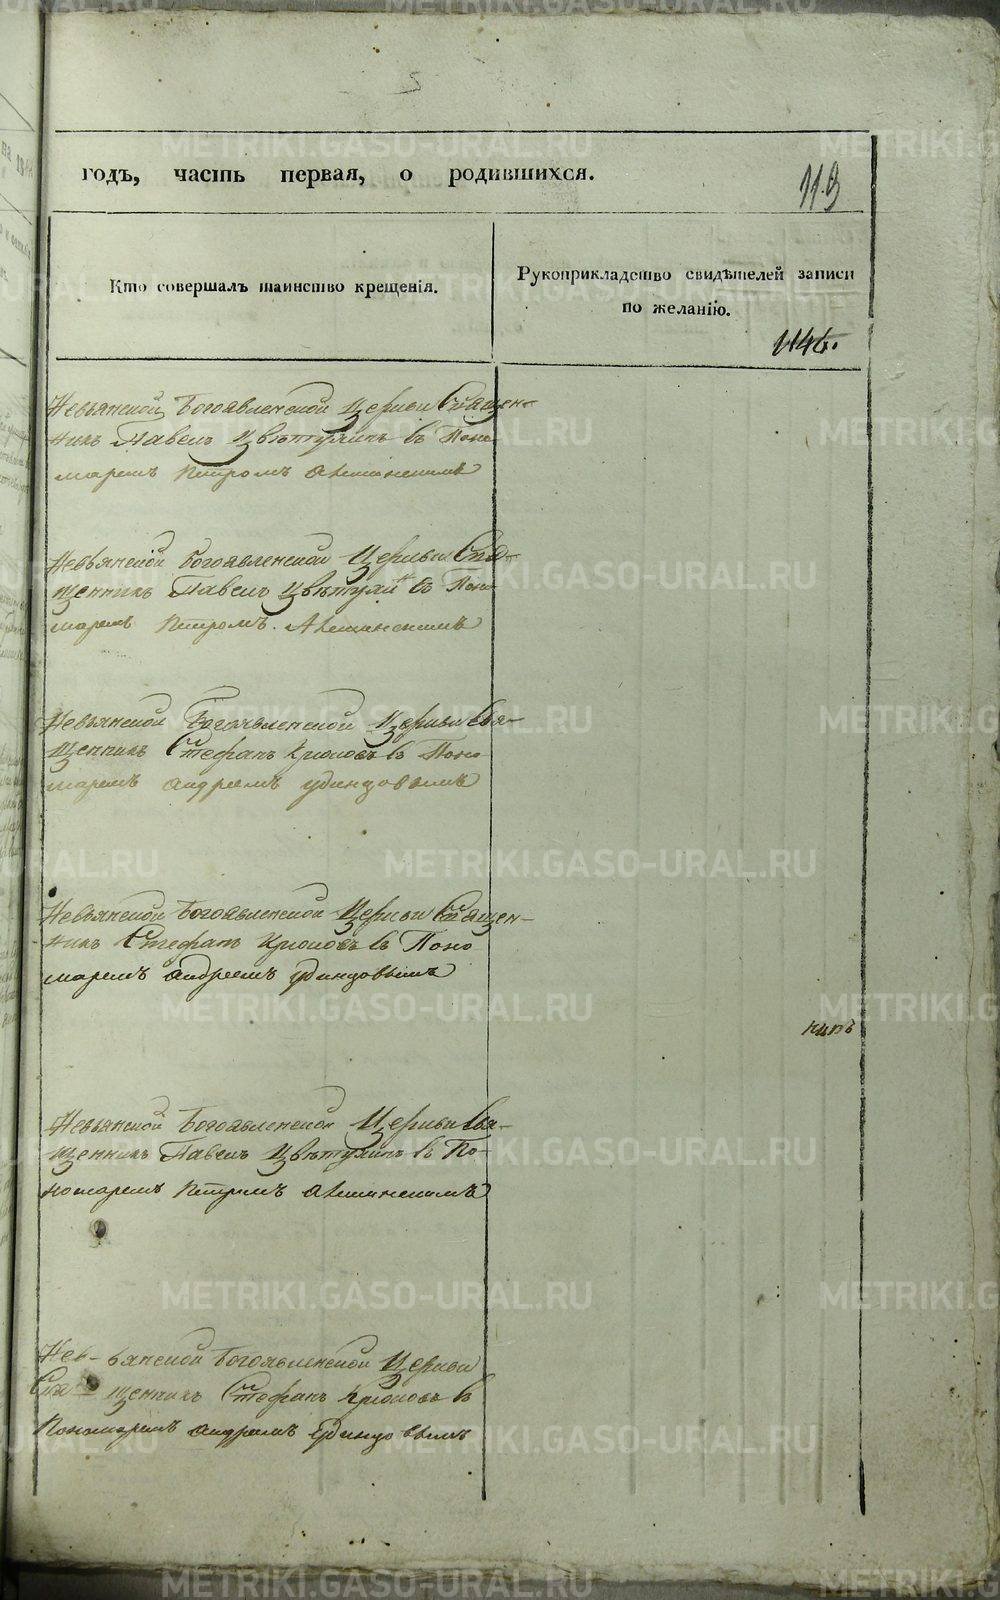 METRIKI.GASO-URAL.RU
годъ, часть первая, о родившихся.
119
Кто совершалъ таинство крещенія.
Рукоприкладство свидѣтелей записи
по желанію.
1146.
Невьянской Богоявленской Церкви Священ-
никъ Павелъ Цвѣтухинъ съ Поно
маремъ Петромъ
Невьянской Богоявленской Церкви Свя-
щенникъ Павелъ Цвѣтухинъ съ Поно
маремъ Петромъ
Невьянской Богоявленской Церкви Свя-
щенникъ Стефанъ Крюковъ съ Поно
маремъ Андреемъ Удинцовымъ
Невьянской Богоявленской Церкви Священ-
никъ Стефанъ Крюковъ съ Поно
маремъ Андреемъ Удинцовымъ
Невьянской Богоявленской Церкви Свя-
щенникъ Павелъ Цвѣтухинъ съ По-
номаремъ Петромъ
Невьянской Богоявленской Церкви
Священникъ Стефанъ Крюковъ съ
Пономаремъ Андреемъ Удинцовымъ